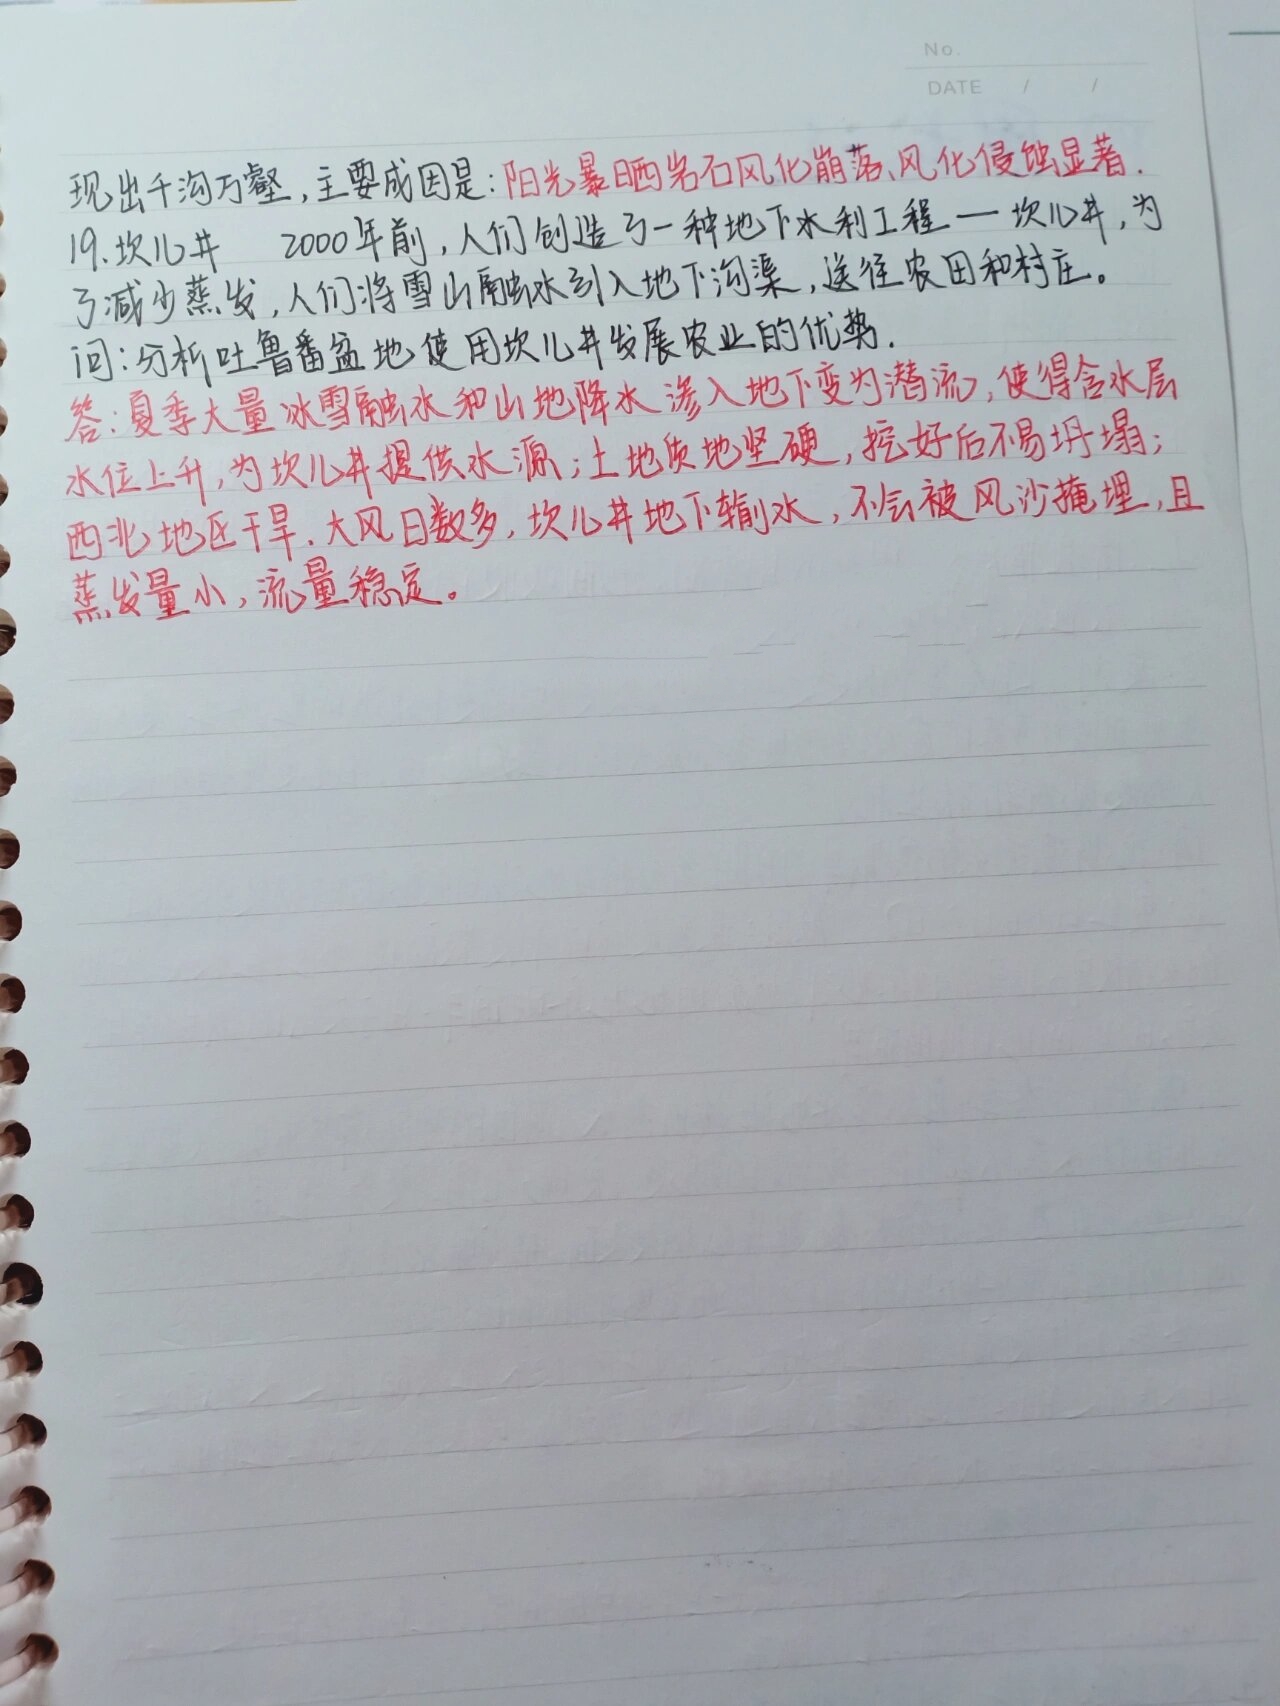 No.
DATE / /
现出千沟万壑，主要成因是：阳光暴晒岩石风化崩落、风化侵蚀显著.
19.坎儿井 2000年前，人们创造了一种地下水利工程一坎儿井，为
了减少蒸发，人们将雪山融水引入地下沟渠，送往农田和村庄。
问：分析吐鲁番盆地使用坎儿井发展农业的优势.
答：夏季大量冰雪融水和山地降水渗入地下变为潜流，使得含水层
水位上升，为坎儿井提供水源；土地质地坚硬，挖好后不易坍塌；
西北地区干旱.大风日数多，坎儿井地下输水，不会被风沙掩埋，且
蒸发量小，流量稳定。